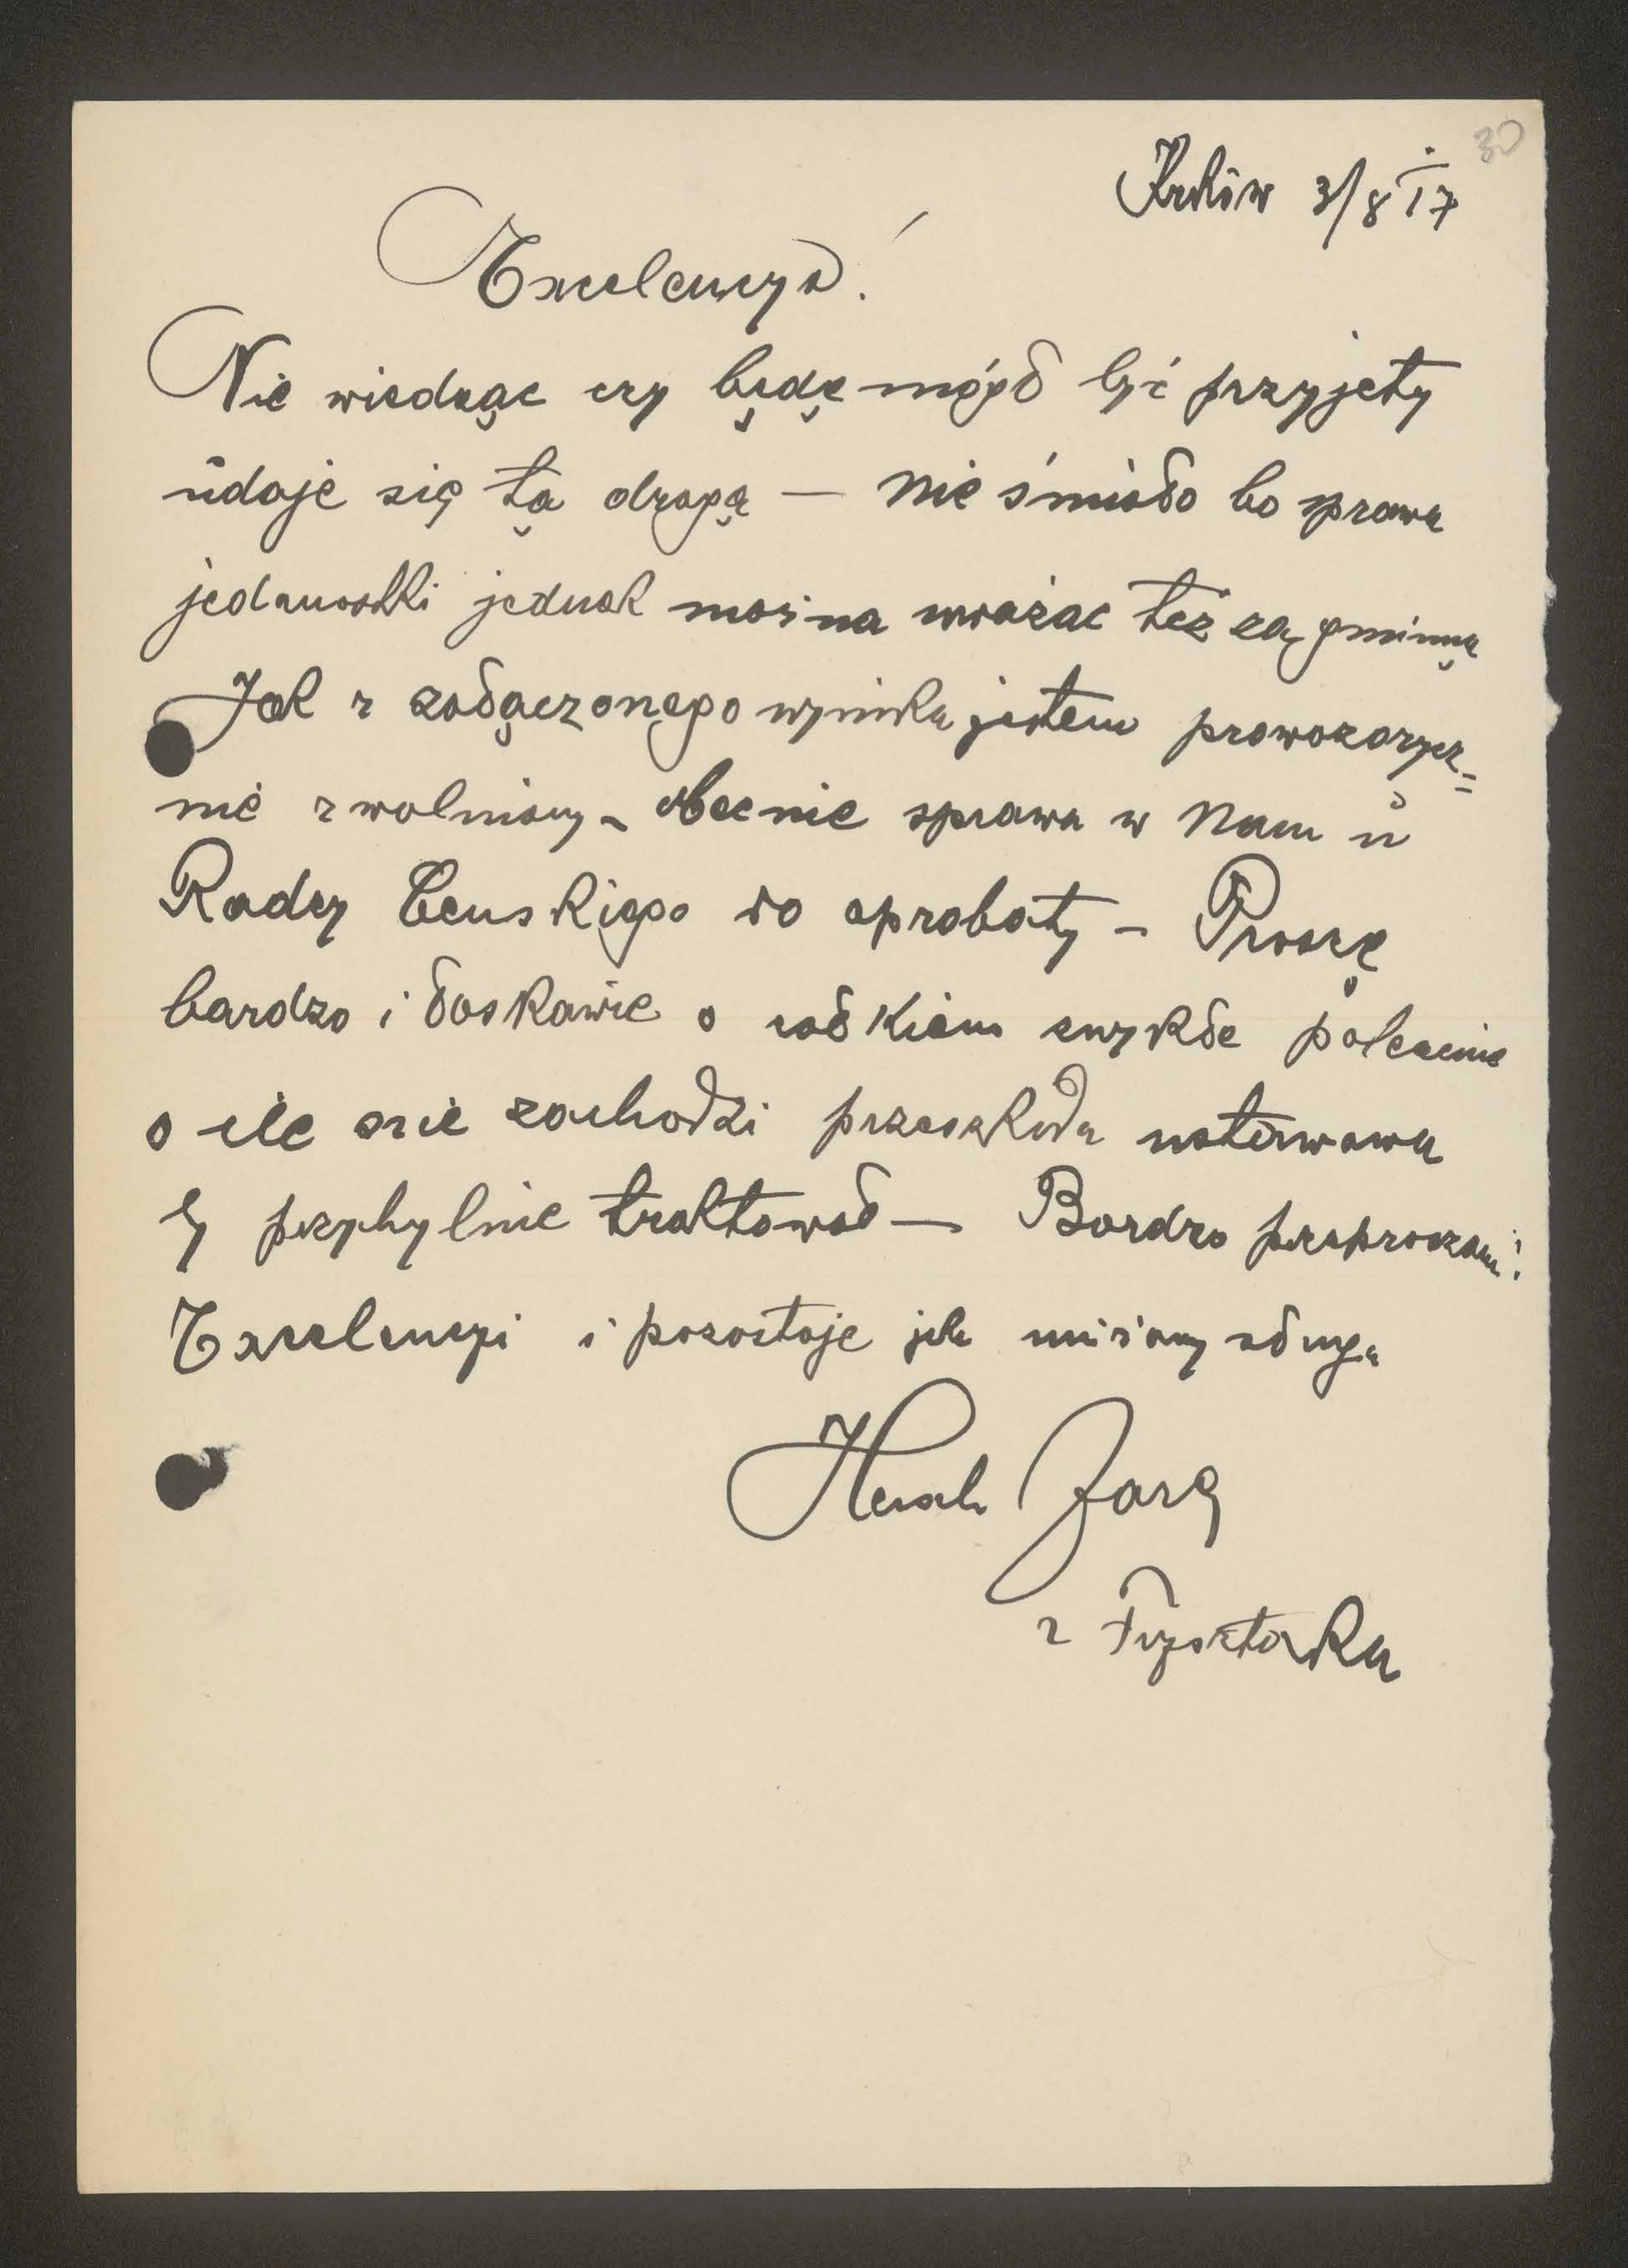 30
Kraków 3/8 17
Excelencyo!
Nie wiedząc czy będę mógł być przyjęty
udaje się tą drogą — nie śmiało bo sprawa
jednostki jednak można uważac też za gminną
Jak z załączonego wynika jestem prowozorycz=
nie zwolniony - obecnie sprawa w Nam u
Radcy do aprobaty - Proszę
bardzo i łoskawie o całkiem zwykłe polecenie
o ile nie zachodzi przeszkoda
by przyhylnie traktował — Bardzo przepraszam
Excelencyi i pozostaje jako uniżony sługa
Hersch Zarg
z Frysztaka